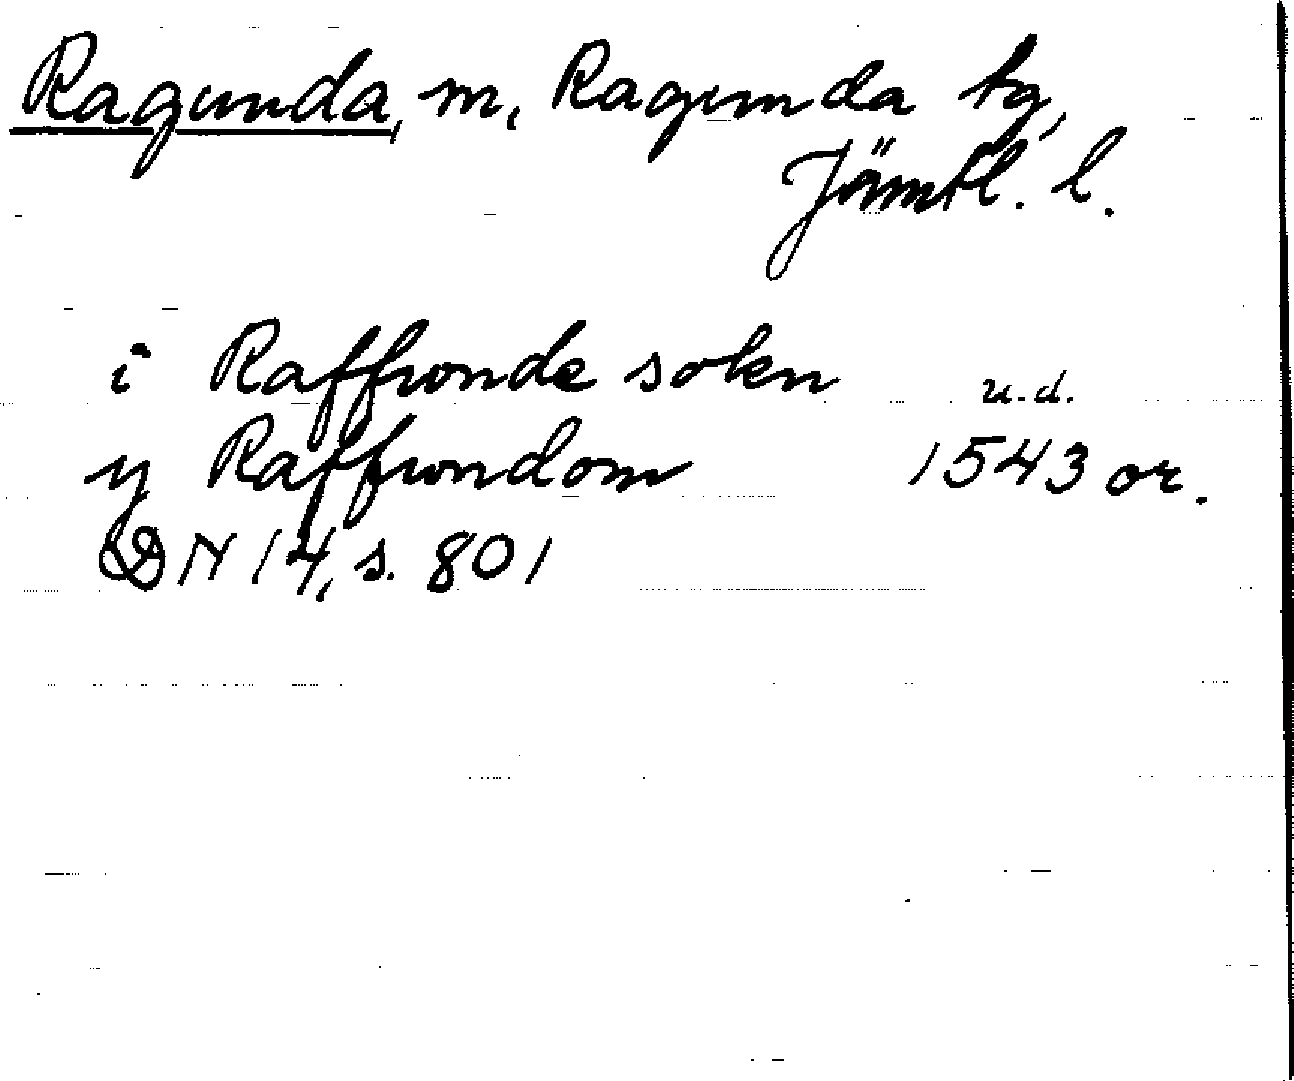 Ragunda, m, Ragunda tg,
Jämtl. l.
i Raffronde sokn u.d.
y Raffrondom 1543 or.
DN 14, s. 801